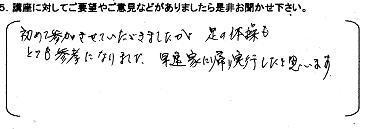 5. 講座に対してご要望やご意見などがありましたら是非お聞かせ下さい。
初めて参加させていただきましたが 足の体操も
とても参考になりました。早速家に帰り実行したいと思います